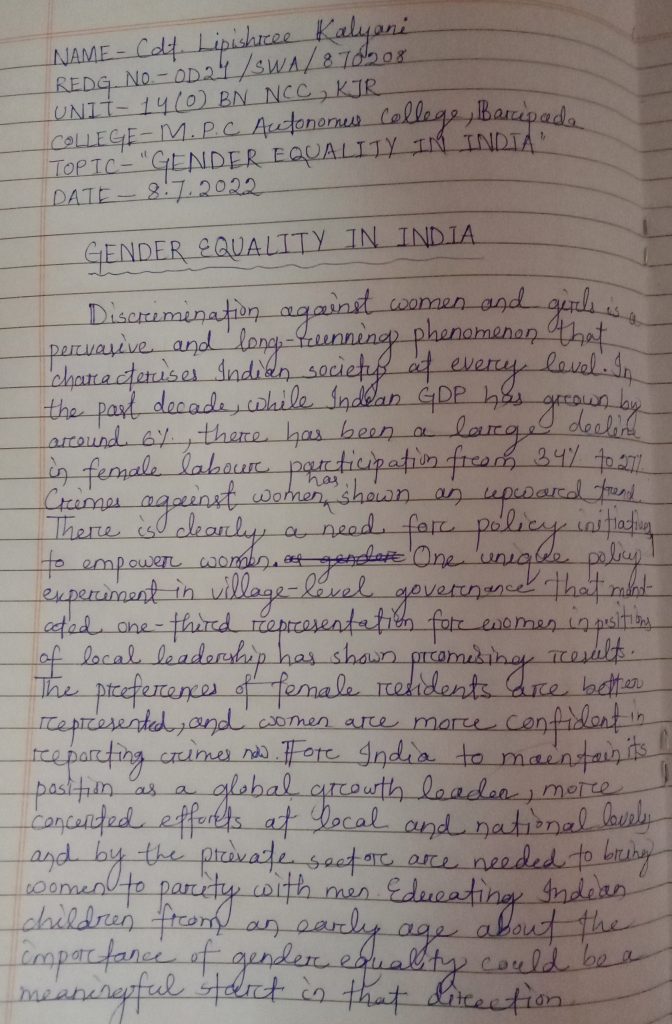 NAME - Cdt. Lipishree Kalyani
REDG. NO. - OD21/SWA/870208
UNIT - 14(O) BN NCC, KJR
COLLEGE - M.P.C Autonomus College, Baripada
TOPIC - "GENDER EQUALITY IN INDIA"
DATE - 8.7.2022
GENDER EQUALITY IN INDIA
Discrimination against women and girls is a
pervasive and long-running phenomenon that
characterises Indian society at every level. In
the past decade, while Indian GDP has grown by
around 6%, there has been a large decline
in female labour participation from 34% to 27%
Crimes against women has shown an upward trend
There is clearly a need for policy initiatives
to empower women. as gender One unique policy
experiment in village-level governance that mand-
ated one-third representation for women in positions
of local leadership has shown promising results.
The preferences of female residents are better
represented, and women are more confident in
reporting crimes now. For India to maintain its
position as a global growth leader, more
concerted efforts at local and national levels
and by the private sector are needed to bring
women to parity with men. Educating Indian
children from an early age about the
importance of gender equality could be a
meaningful start in that direction.